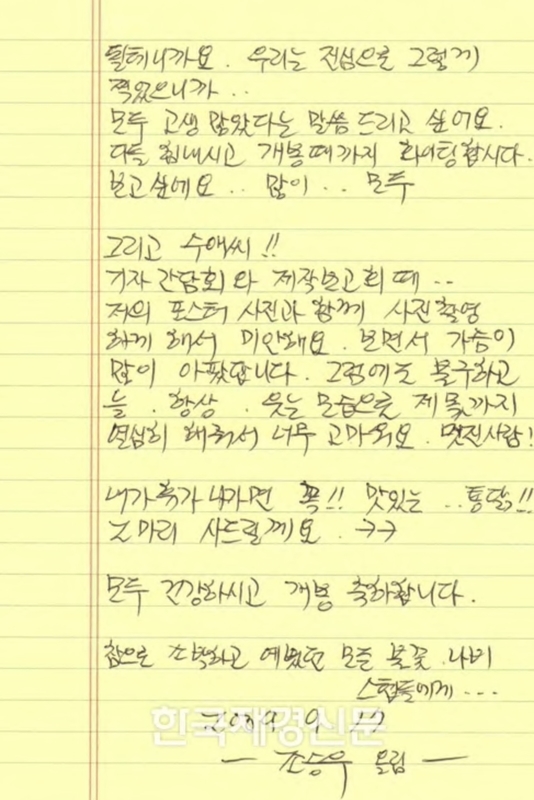 될테니까요. 우리는 진심으로 그렇게
찍었으니까..
모두 고생 많았다는 말씀 드리고 싶어요.
다들 힘내시고 개봉때까지 화이팅합시다.
보고싶에요.. 많이.. 모두
그리고 수애씨!!
기자간담회와 제작보고회 때..
저의 포스터 사진과 함께 사진촬영
하게 해서 미안해요. 보면서 가슴이
많이 아팠답니다. 그럼에도 불구하고
늘. 항상. 웃는 모습으로 제 몫까지
열심히 해줘서 너무 고마워요. 멋진사람!
내가 휴가 나가면 꼭!! 맛있는 ..통닭!!
2마리 사드릴께요. ㅋㅋ
모두 건강하시고 개봉 축하합니다.
참으로 소박하고 예뻤던 모든 불꽃.나비
스텝들에게...
2009 9 12
한국재경신문
— 조승우 올림 —